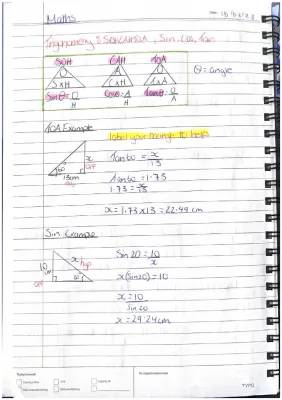 Maths
Trigonometry SOHCAHTOA, Sin, Cos, Tan
SOH CAH TOA
O A O
S x H C x H T x A
Sinθ = O/H Cosθ = A/H Tanθ = O/A
θ = angle
TOA Example
label your triangle to help
x opp
60°
13cm
adj
Tan60 = x/13
Tan60 = 1.73
1.73 = x/13
x = 1.73 x 13 = 22.49cm
Sin Example
10cm
opp
x hyp
Sin20 = 10/x
x(Sin20) = 10
x = 10/Sin20
x = 29.24cm